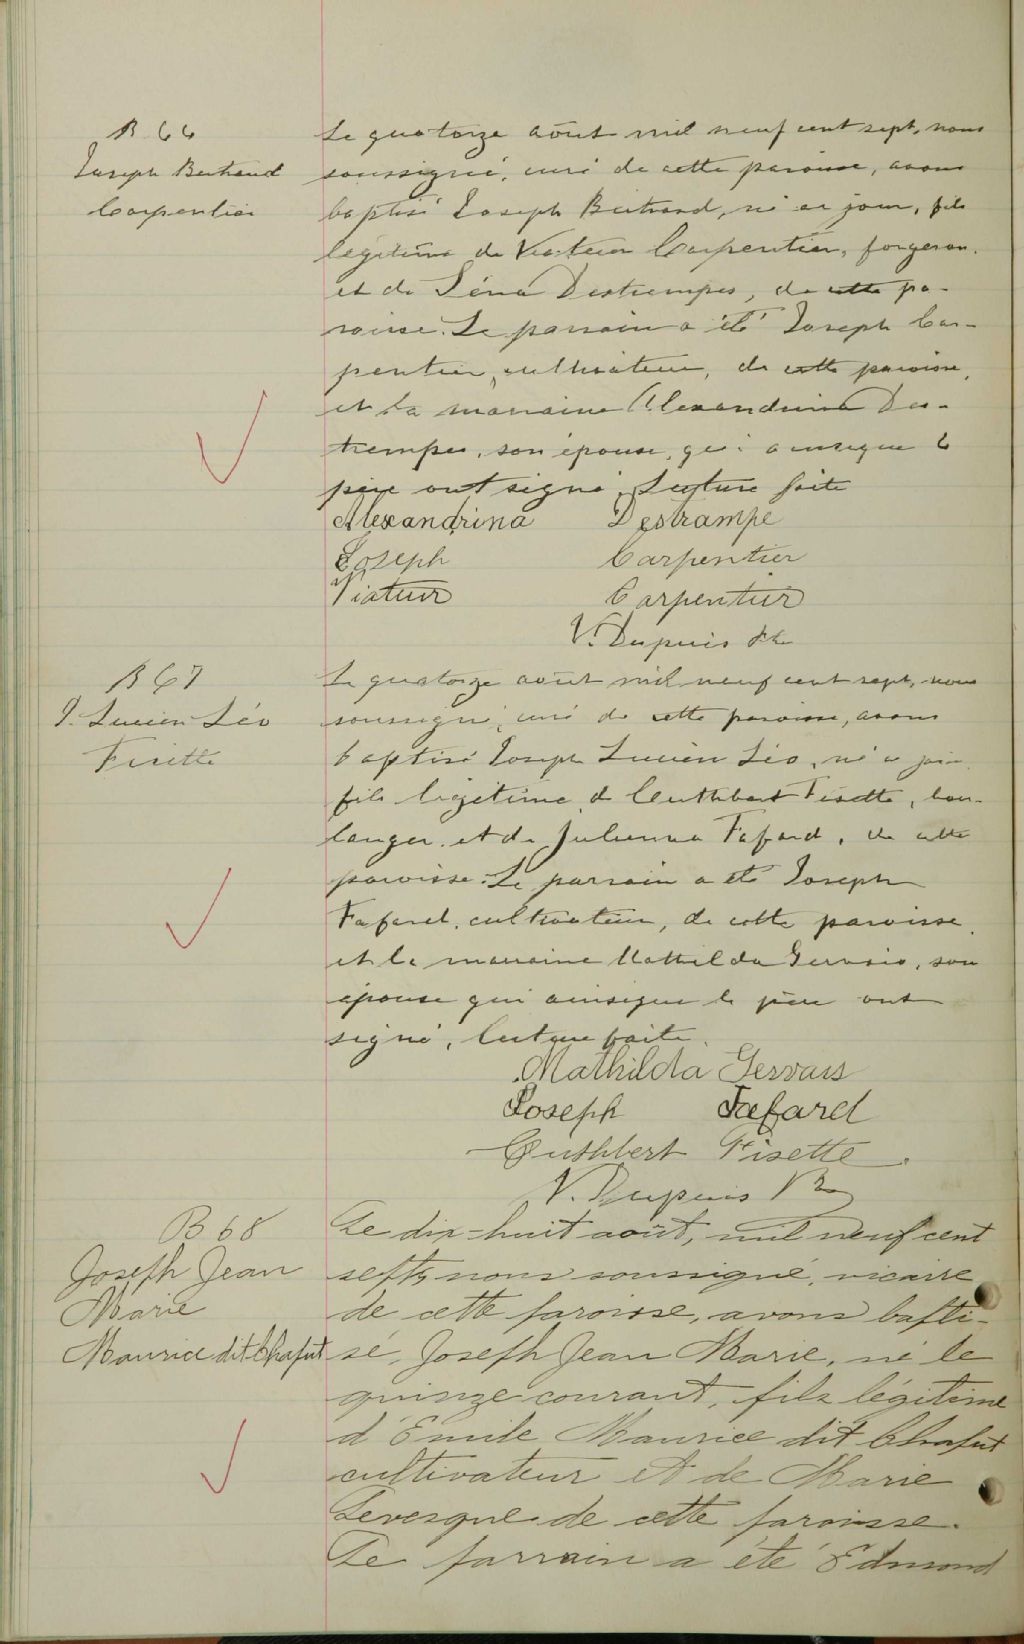 B 66
Joseph Bertrand
Carpentier
Le quatorze août mil neuf cent sept, nous
soussigné, curé de cette paroisse, avons
baptisé Joseph Bertrand, né ce jour, fils
légitime de Viateur Carpentier, forgeron,
et de Léna Destrempes, de cette pa-
roisse. Le parrain a été Joseph Car-
pentier, cultivateur, de cette paroisse,
et la marraine Alexandrina Des-
trempes, son épouse, qui ainsique le
père ont signé. Lecture faite
Alexandrina Destrampe
Joseph Carpentier
Viateur Carpentier
V. Dupuis Ptre
B 67
J. Lucien Léo
Fisette
Le quatorze août mil neuf cent sept, nous
soussigné, curé de cette paroisse, avons
baptisé Joseph Lucien Léo, né ce jour,
fils légitime de Cuthbert Fisette, bou-
langer, et de Julienna Fafard, de cette
paroisse. Le parrain a été Joseph
Fafard, cultivateur, de cette paroisse,
et la marraine Mathilda Gervais, son
épouse qui ainsique le père ont
signé, lecture faite.
Mathilda Gervais
Joseph Fafard
Cuthbert Fisette
V. Dupuis Ptre
B 68
Joseph Jean
Marie
Maurice dit Chaput
Le dix-huit août, mil neuf cent
sept, nous soussigné, vicaire
de cette paroisse, avons bapti-
sé, Joseph Jean Marie, né le
quinze courant, fils légitime
d'Emile Maurice dit Chaput
cultivateur et de Marie
Levesque de cette paroisse.
Le parrain a été Edmond